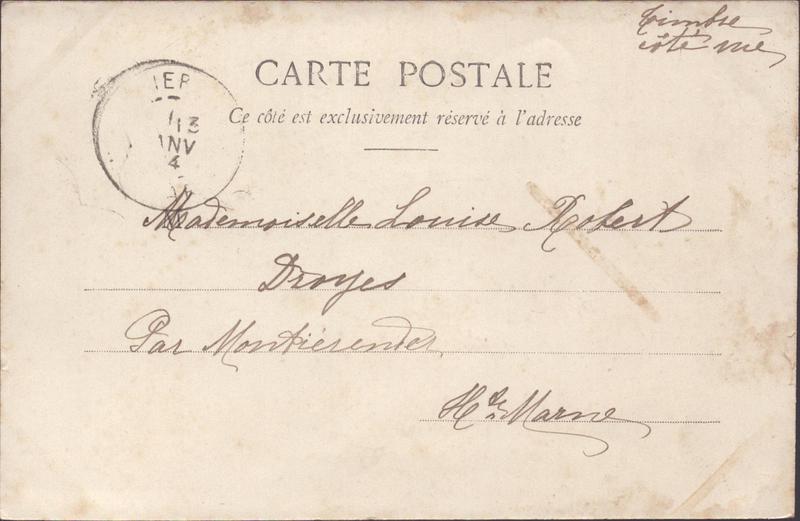 Timbre
côté vue
CARTE POSTALE
Ce côté est exclusivement réservé à l'adresse
IER
13
ANV
4
Mademoiselle Louise Robert
Droyes
Par Montiérender
Hte Marne